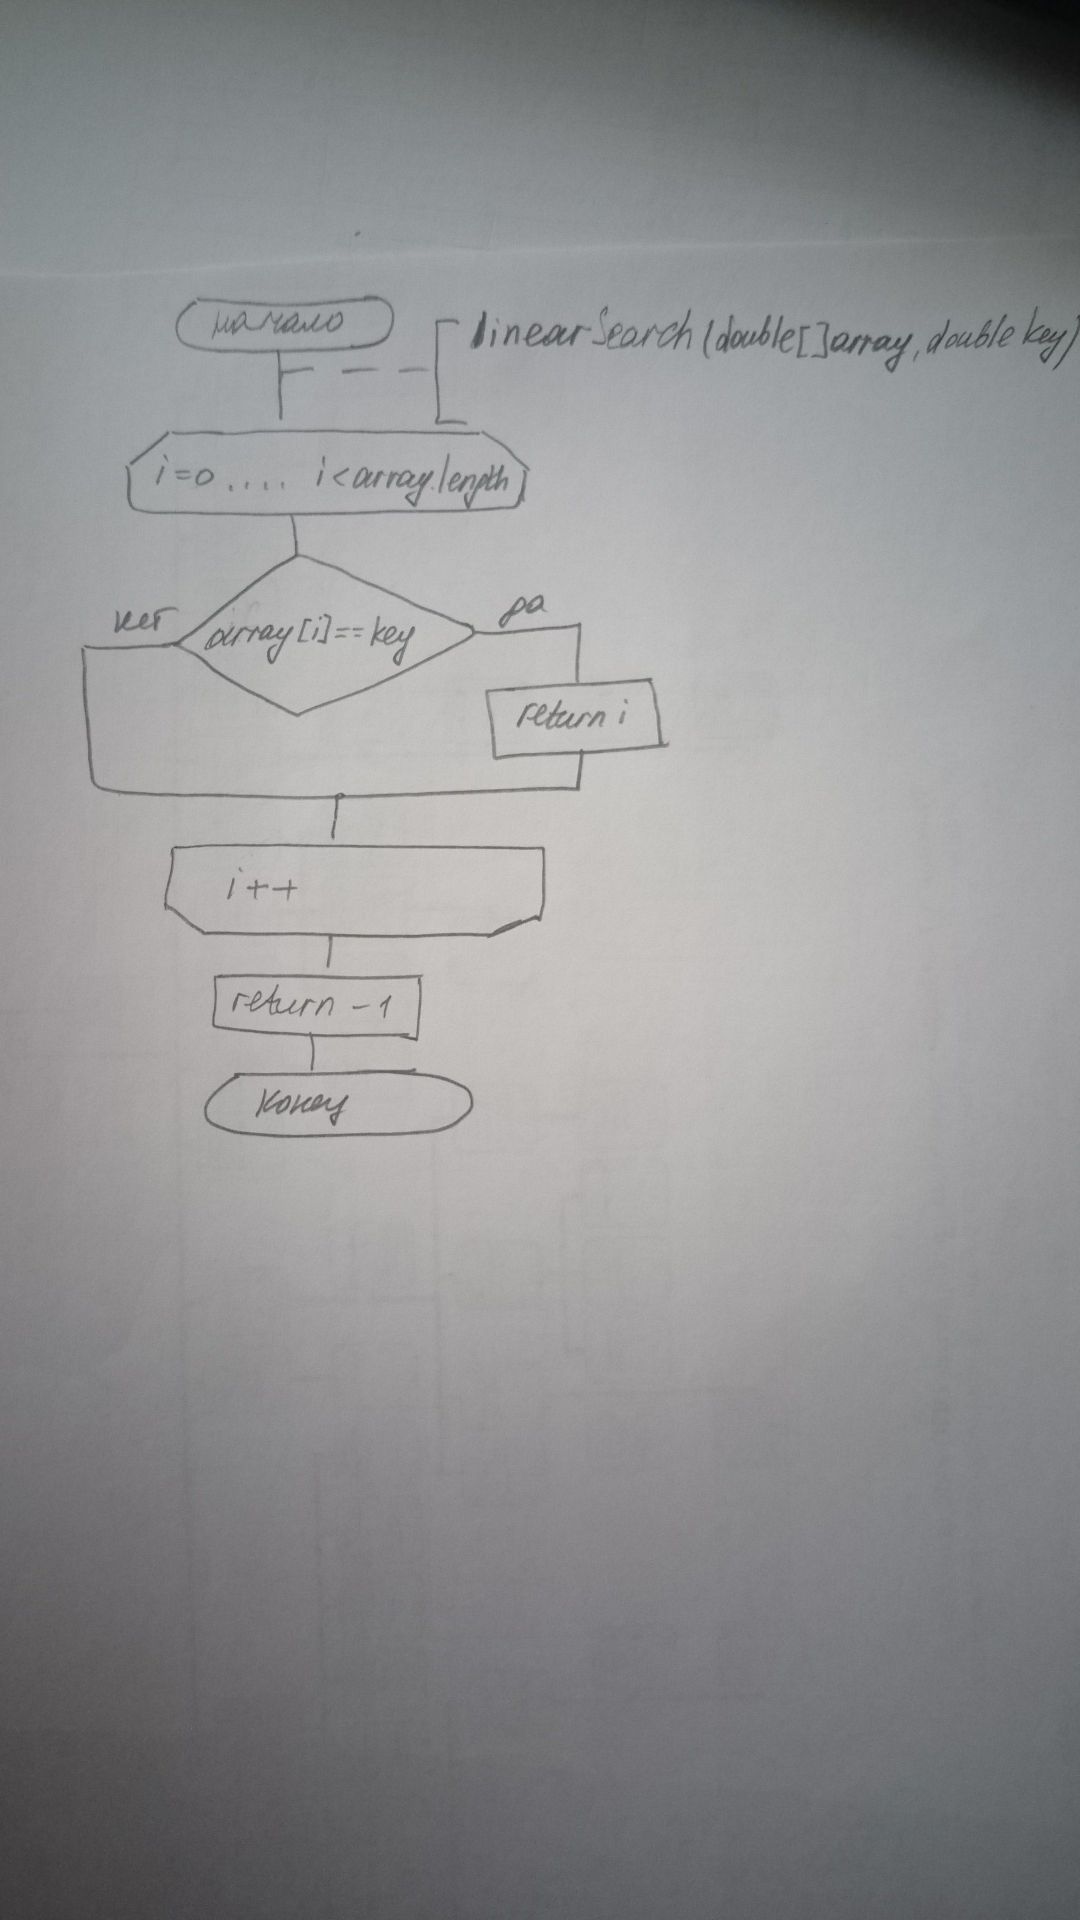 начало
linearSearch(double[]array, double key)
i=0.... i<array.length
нет
да
array[i]==key
return i
i++
return -1
конец